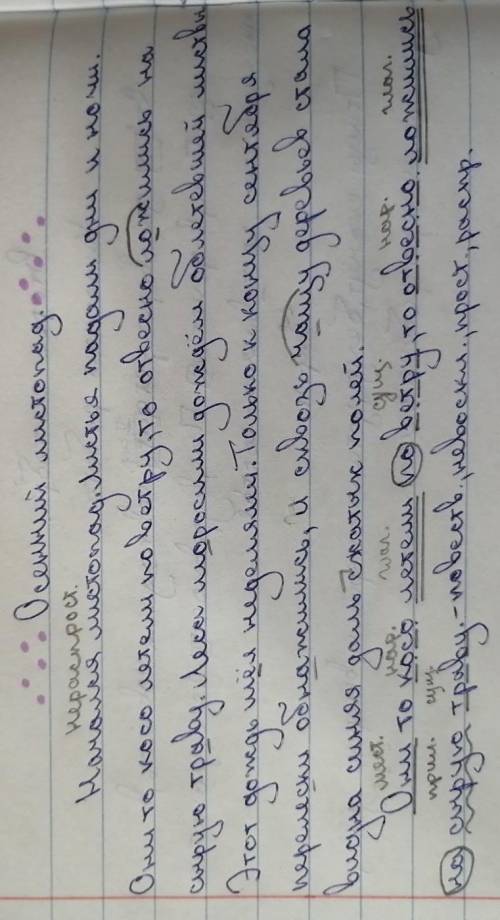 Осенний листопад.
нераспрост.
Начался листопад. Листья падали дни и ночи.
Они то косо летели по ветру, то отвесно ложились на
сырую траву. Леса моросили дождём облетевшей листвы.
Этот дождь шёл неделями. Только к концу сентября
перелески обнажились, и сквозь чащу деревьев стала
видна синяя даль сжатых полей.
мест. нар. глаг. сущ. нар. глаг.
Они то косо летели по ветру, то отвесно ложились
прил. сущ.
на сырую траву. - повеств., невоскл., прост., распр.